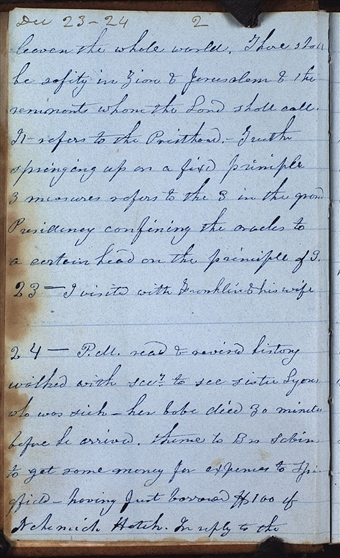 Dec 23-24 2
leaven the whole world. There shall
be safity in Zion & Jerusalem & the
remnant whom the Lord shall call.
It refers to the Priesthood. - Truth
springing up on a fixd principle
3 measures refers to the 3 in the grand
Presidency confining the oracles to
a certain head on the principle of 3.
23 — I visite with Franklin & his wife
24 — P.M. read & revised history
walked with secy. to see sister Lyons
who was sick - her babe died 30 minutes
before he arrived. thence to Bro Sabin
to get some money for expences to Spri
gfield - having Just borrowed $100 of
Nehemiah Hatch. In reply to the